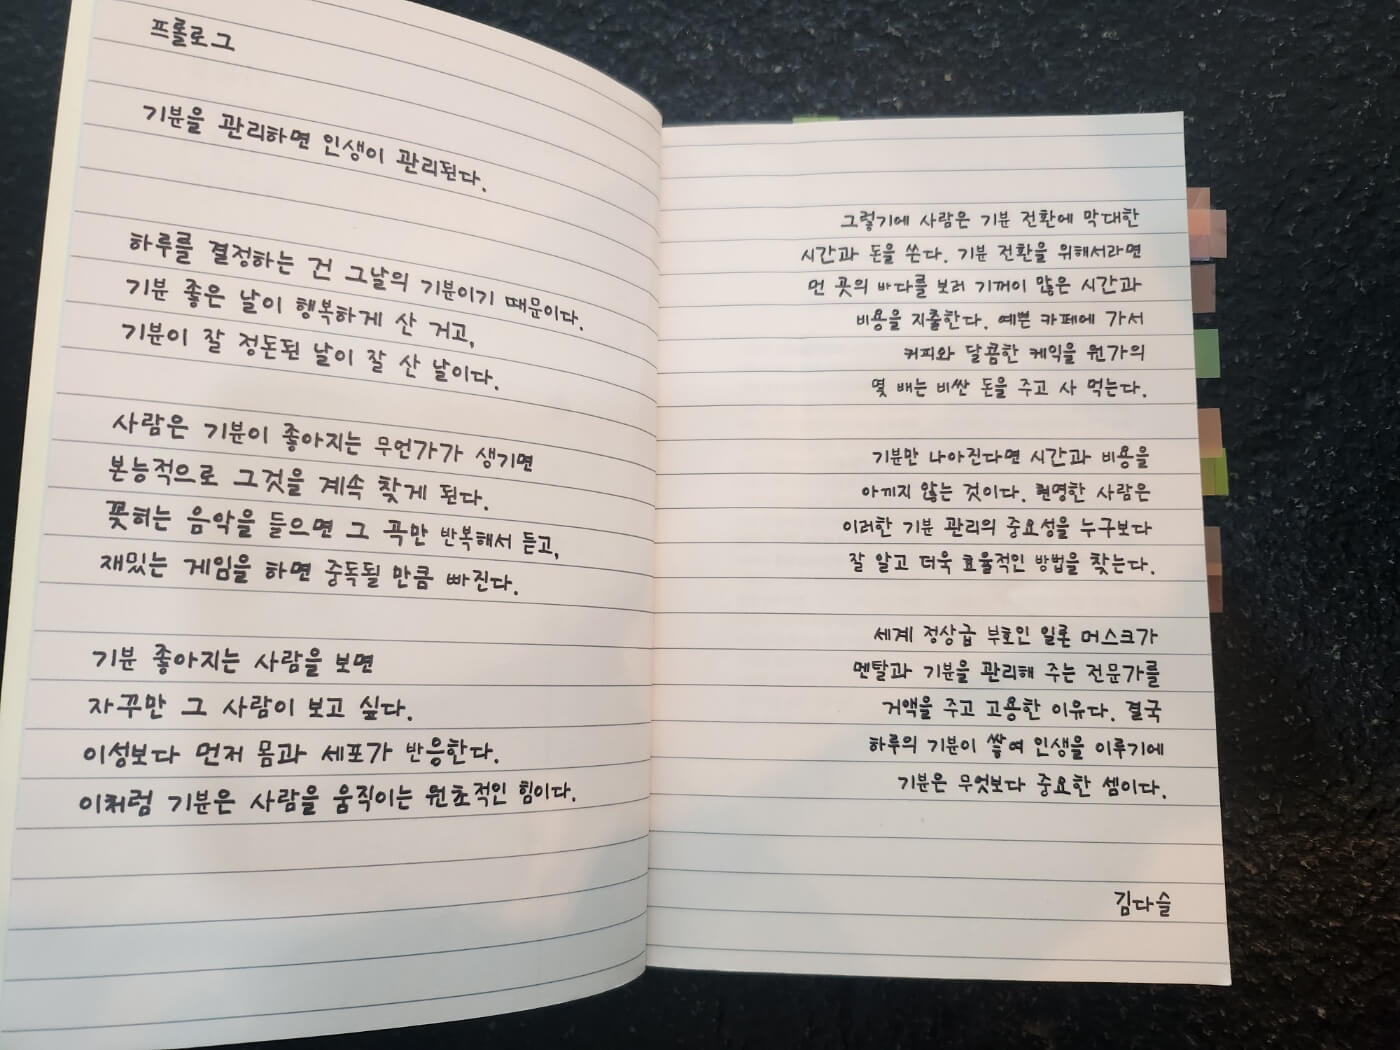 프롤로그
기분을 관리하면 인생이 관리된다.
하루를 결정하는 건 그날의 기분이기 때문이다.
기분 좋은 날이 행복하게 산 거고,
기분이 잘 정돈된 날이 잘 산 날이다.
사람은 기분이 좋아지는 무언가가 생기면
본능적으로 그것을 계속 찾게 된다.
꽂히는 음악을 들으면 그 곡만 반복해서 듣고,
재밌는 게임을 하면 중독될 만큼 빠진다.
기분 좋아지는 사람을 보면
자꾸만 그 사람이 보고 싶다.
이성보다 먼저 몸과 세포가 반응한다.
이처럼 기분은 사람을 움직이는 원초적인 힘이다.
그렇기에 사람은 기분 전환에 막대한
시간과 돈을 쓴다. 기분 전환을 위해서라면
먼 곳의 바다를 보러 기꺼이 많은 시간과
비용을 지출한다. 예쁜 카페에 가서
커피와 달콤한 케익을 원가의
몇 배는 비싼 돈을 주고 사 먹는다.
기분만 나아진다면 시간과 비용을
아끼지 않는 것이다. 현명한 사람은
이러한 기분 관리의 중요성을 누구보다
잘 알고 더욱 효율적인 방법을 찾는다.
세계 정상급 부호인 일론 머스크가
멘탈과 기분을 관리해 주는 전문가를
거액을 주고 고용한 이유다. 결국
하루의 기분이 쌓여 인생을 이루기에
기분은 무엇보다 중요한 셈이다.
김다슬